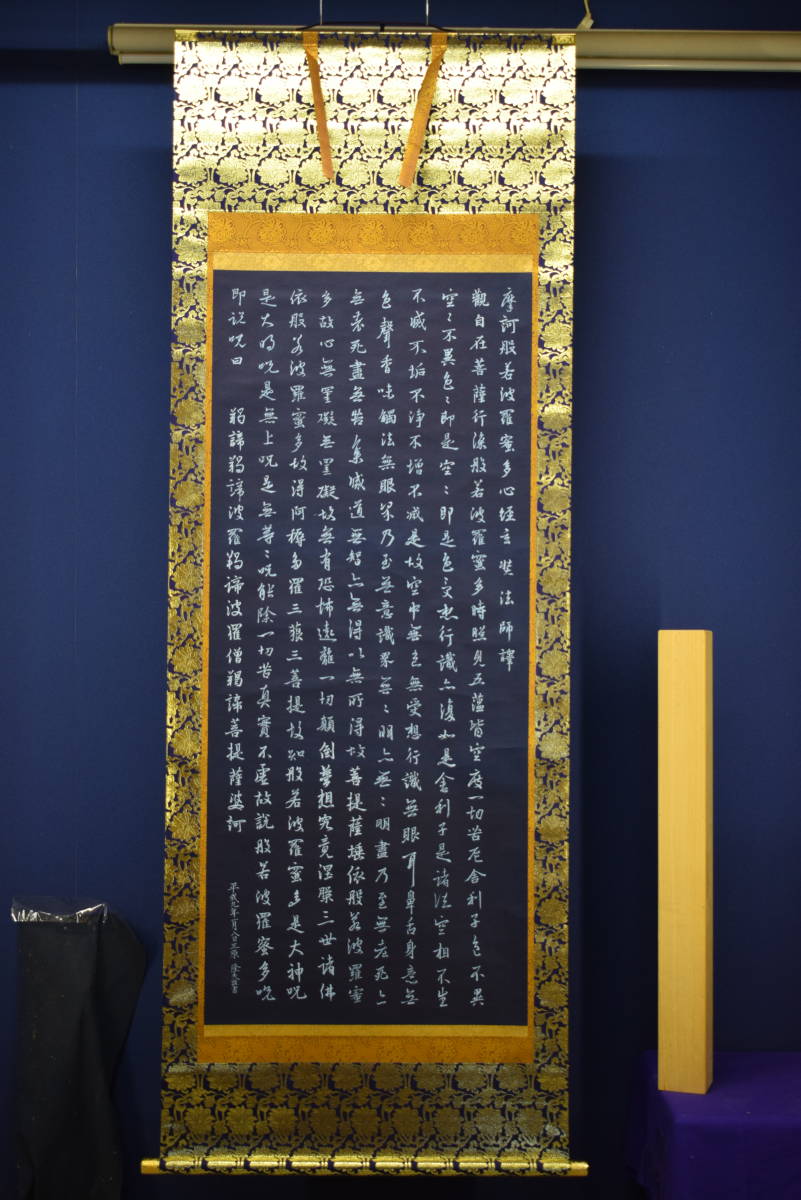 摩訶般若波羅蜜多心経玄奘法師譯
觀自在菩薩行深般若波羅蜜多時照見五蘊皆空度一切苦厄舍利子色不異
空〻不異色〻即是空〻即是色受想行識亦復如是舍利子是諸法空相不生
不滅不垢不淨不增不減是故空中無色無受想行識無眼耳鼻舌身意無
色聲香味觸法無眼界乃至無意識界無〻明亦無〻明盡乃至無老死亦
無老死盡無苦集滅道無智亦無得以無所得故菩提薩埵依般若波羅蜜
多故心無罣礙無罣礙故無有恐怖遠離一切顛倒夢想究竟涅槃三世諸佛
依般若波羅蜜多故得阿耨多羅三藐三菩提故知般若波羅蜜多是大神呪
是大明呪是無上呪是無等〻呪能除一切苦真實不虛故說般若波羅蜜多呪
即説呪曰 羯諦羯諦波羅羯諦波羅僧羯諦菩提薩婆訶
平成九年一月八日三原